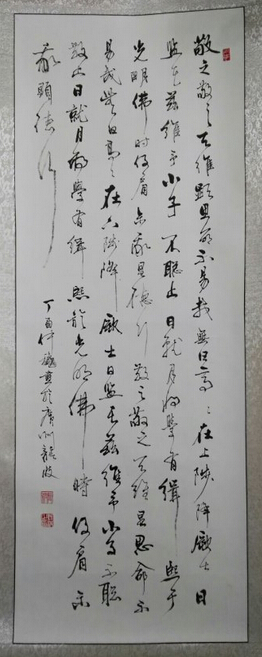 敬之敬之天維顯思命不易哉無曰高〻在上陟降厥士日
監在茲維予小子不聰止日就月將學有緝熙于
光明佛時仔肩示我顯德行敬之敬之天維顯思命不
易哉無曰高〻在上陟降厥士日監在茲維予小子不聰
敬止日就月將學有緝熙於光明佛時仔肩示
我顯德行
丁酉仲書於廣州龍